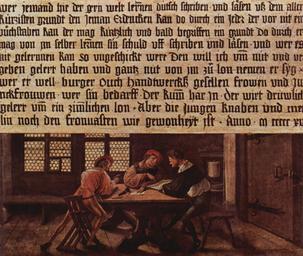 wer jemand hie der gern welt lernen dütsch schriben und läsen uß dem aller
kürtzisten grundt den jeman erdencken kan do durch ein jeder der vor nit ein
büchstaben kan der mag kürtzlich und bald begriffen ein grundt do durch er
mag von im selber lernen sin schuld uff schriben und läsen und wer es
nit gelernnen kan so ungeschickt were den will ich um nüt und ver
geben gelert haben und gantz nüt von im zü lon nemen er syg
wer er well burger ouch handtwercks gesellen frowen und ju
nckfrouwen wer sin bedarff der kum har jn der wirt drüwlich
gelert um ein zimlichen lon aber die jungen knaben und meit
lin noch den fronvasten wie gewonheyt ist anno m ccccc xv